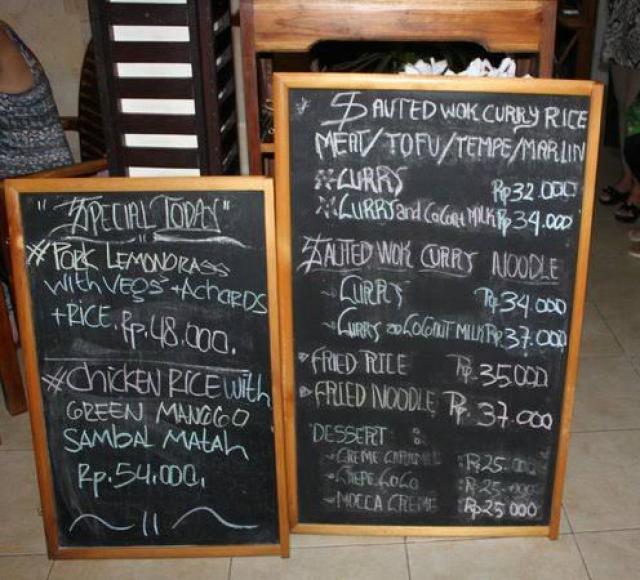 "Special Today"
# Pork Lemongrass
with Vegs + Achards
+ Rice. Rp. 48.000.
# Chicken Rice with
Green Manggo
Sambal Matah
Rp. 54.000.
Sauted Wok Curry Rice
Meat/Tofu/Tempe/Marlin
Curry Rp 32.000
Curry and Coconut Milk Rp 34.000
Sauted Wok Curry Noodle
Curry Rp 34.000
Curry and Coconut Milk Rp 37.000
Fried Rice Rp. 35.000
Fried Noodle Rp. 37.000
Dessert :
Creme Caramel Rp 25.000
Crepe Coco Rp 25.000
Mocca Creme Rp 25.000